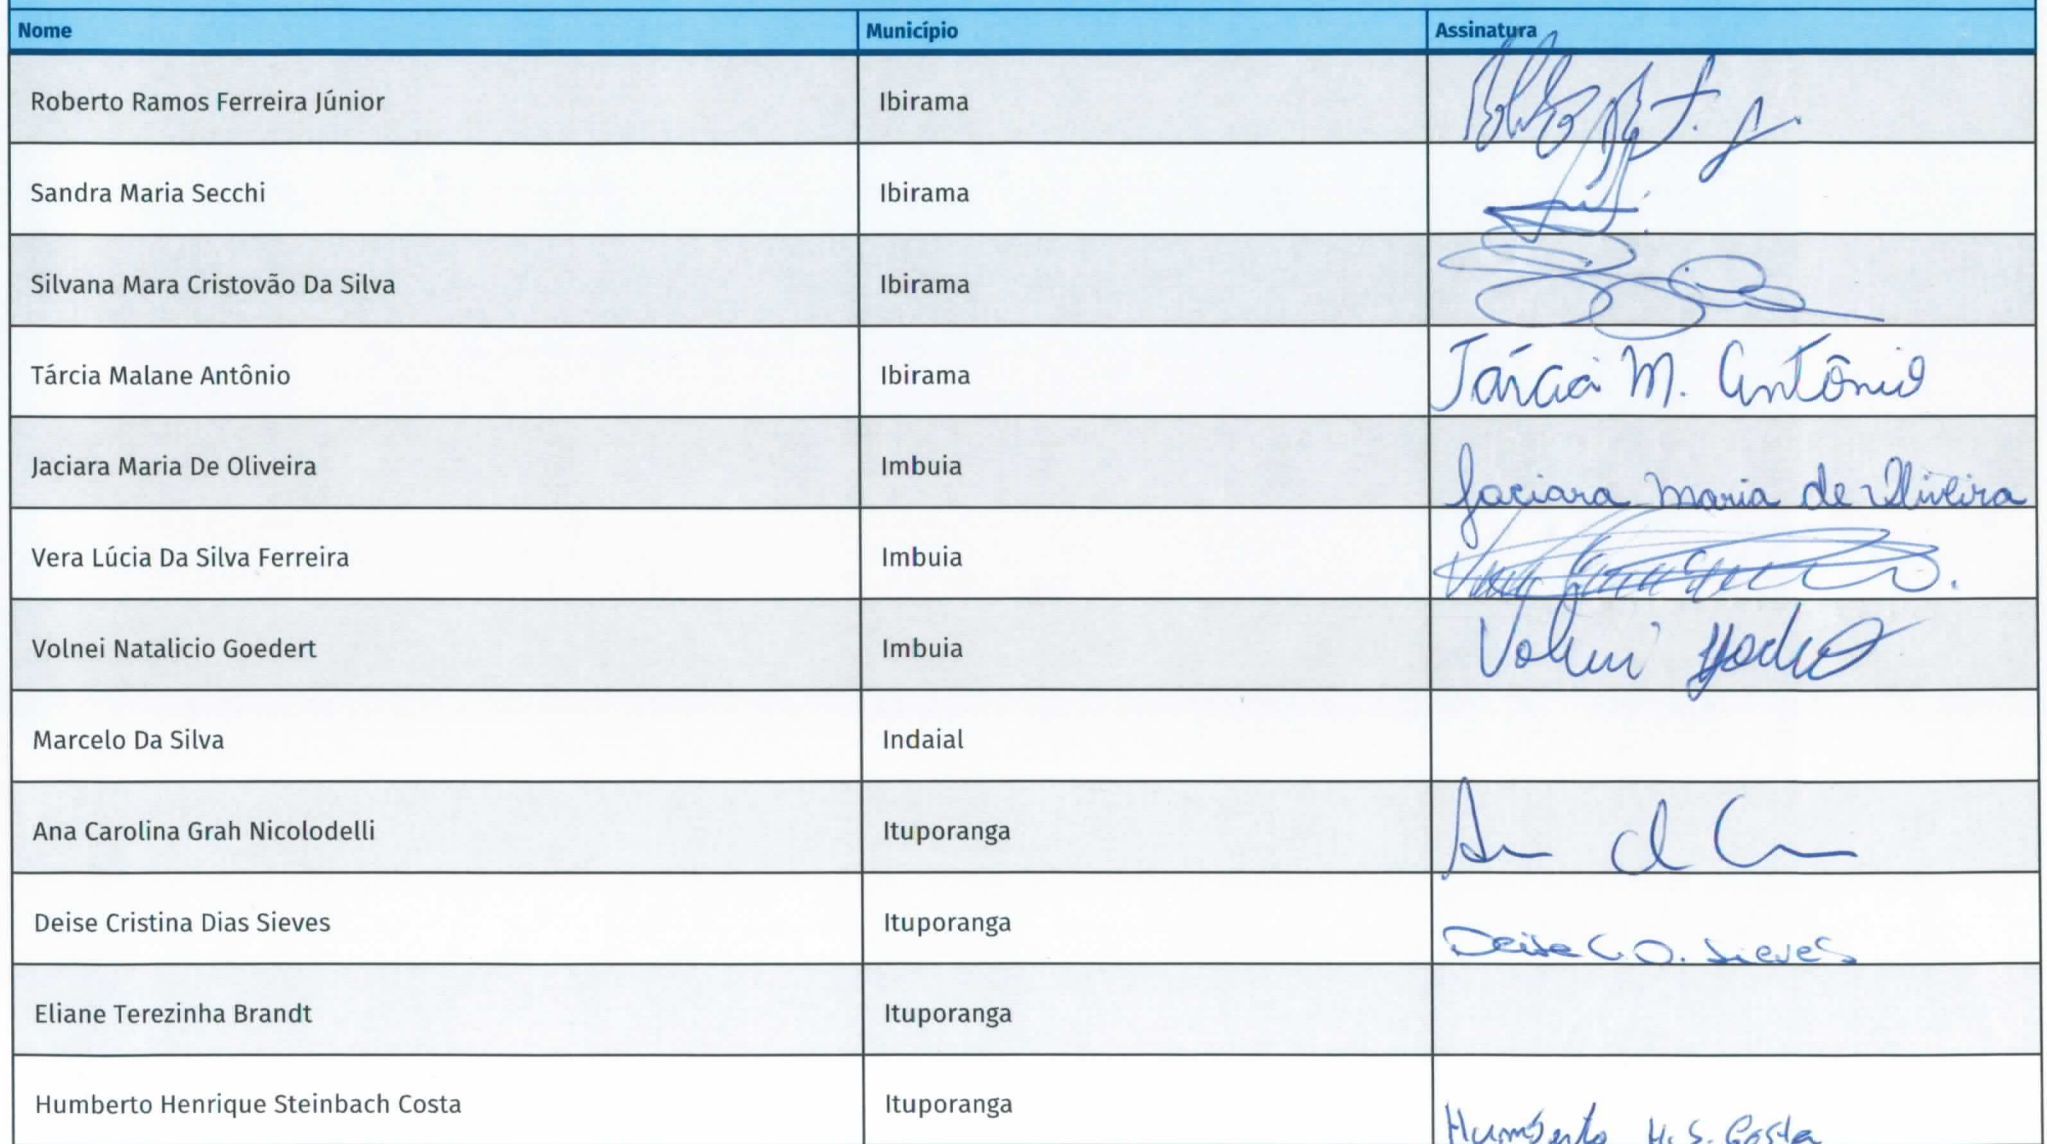 Nome Município Assinatura
Roberto Ramos Ferreira Júnior Ibirama
Sandra Maria Secchi Ibirama
Silvana Mara Cristovão Da Silva Ibirama
Tárcia Malane Antônio Ibirama Tárcia M. Antônio
Jaciara Maria De Oliveira Imbuia Jaciara Maria de Oliveira
Vera Lúcia Da Silva Ferreira Imbuia
Volnei Natalicio Goedert Imbuia Volnei
Marcelo Da Silva Indaial
Ana Carolina Grah Nicolodelli Ituporanga
Deise Cristina Dias Sieves Ituporanga Deise C.D. Sieves
Eliane Terezinha Brandt Ituporanga
Humberto Henrique Steinbach Costa Ituporanga Humberto H.S. Costa